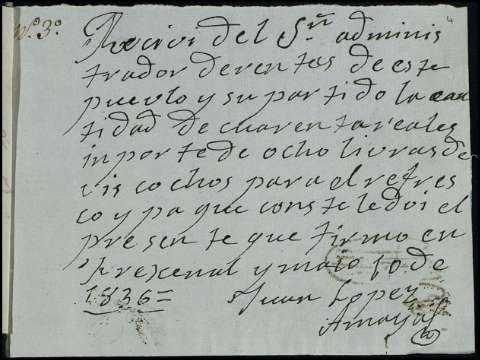 Nº. 3º.
Recivi del Sʳ. adminis
trador de rentas de este
puevlo y su partido la can
tidad de cuarenta reales
inporte de ocho livras de
viscochos para el refres
co y pa que conste le doi el
presente que firmo en
Frexenal y maio 10 de
1836=
Juan Lopez
Amaya